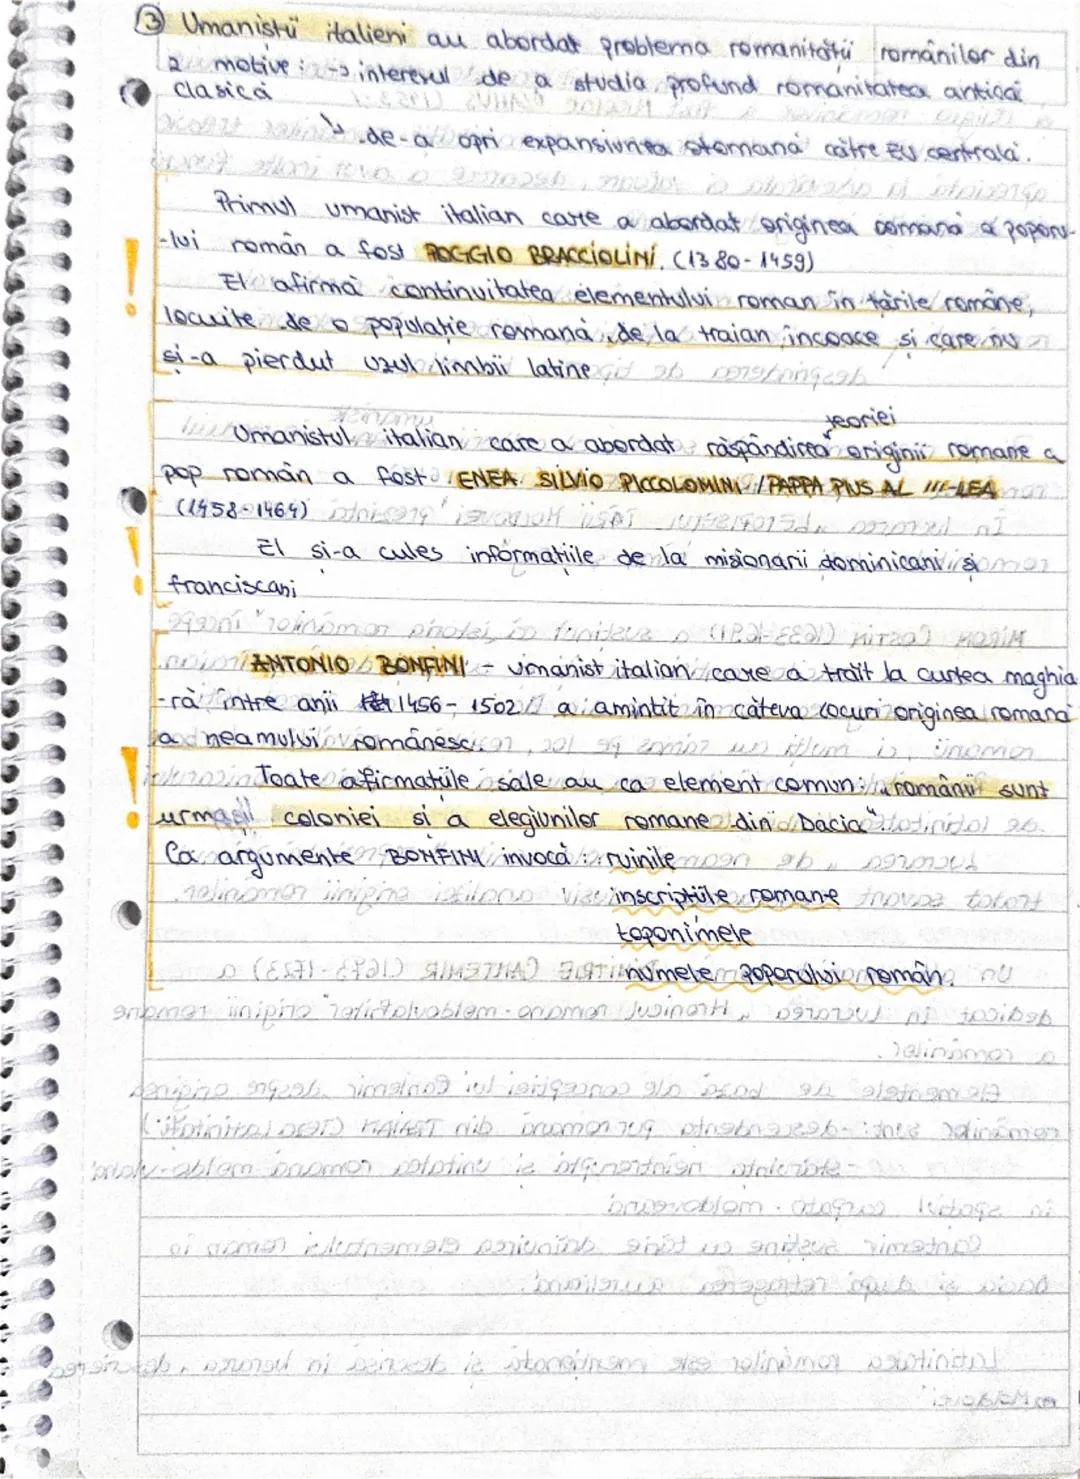 ③ Umaniștii italieni au abordat problema romanității românilor din
2 motive: → interesul de a studia profund romanitatea antică
clasică
↳ de-a opri expansiunea otomană către EU centrală.
Primul umanist italian care a abordat originea romană a poporu-
-lui român a fost POGGIO BRACCIOLINI. (1380-1459)
El afirmă continuitatea elementului roman în țările române,
locuite de o populație romană, de la traian încoace și care nu
și-a pierdut uzul limbii latine
teoriei
Umanistul italian care a abordat răspândirea originii romane a
pop român a fost ENEA SILVIO PICCOLOMINI / PAPPA PIUS AL III-LEA
(1458-1464)
El și-a cules informațiile de la misionarii dominicani și
franciscani
ANTONIO BONFINI - umanist italian care a trăit la curtea maghia
-ră între anii 1456 - 1502 a amintit în câteva locuri originea romană
a neamului românesc.
Toate afirmațiile sale au ca element comun: "românii sunt
urmașii coloniei și a elegiunilor romane din Dacia"
Ca argumente BONFINI invocă: ruinile
inscripțiile romane
toponimele
numele poporului român.